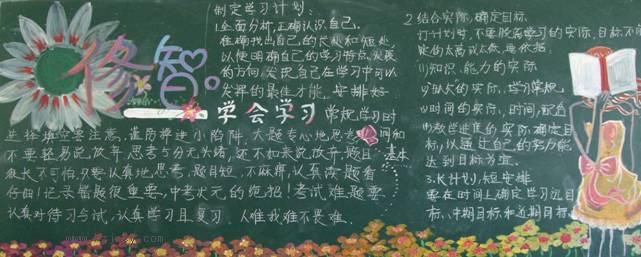 修智
制定学习计划:
1.全面分析,正确认识自己。
准确找出自己的长处和短处,
以便明确自己的学习特点、发展
的方向,发现自己在学习中可以
发挥的最佳才能。安排好
学会学习
常规学习时
间和
基本
选择填空要注意,谨防掉进小陷阱,大题专心地思考
不要轻易说放弃,思考5分无头绪,还不和来说放弃,题目
很长不可怕,只要认真地思考,题目短,不麻痹,认真读题看
仔细!记录错题很重要,中考状元的绝招!考试难题要
认真对待习与试,认真学习且复习 人难我难不畏难、
2.结合实际,确定目标。
订计划时,不要脱离学习的实际,目标不
定的太高或太低,要依据:
(1)知识、能力的实际
(3)时间的实际,时间,配合
(4)教学进度的实际,确定目
标,以通过自己的努力能
达到目标为宜。
3.长计划,短安排
要在时间上确定学习远目
标、中期目标和近期目标。